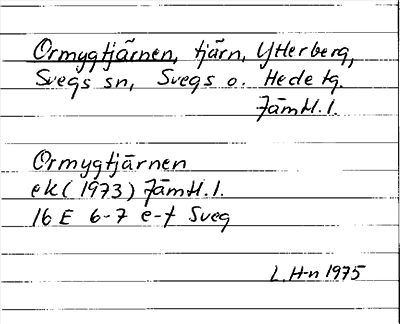 Ormygtjärnen, tjärn, Ytterberg,
Svegs sn, Svegs o. Hede tg.
Jämtl. l.
Ormygtjärnen
ek (1973) Jämtl. l.
16 E 6-7 e-f Sveg
L. H-n 1975